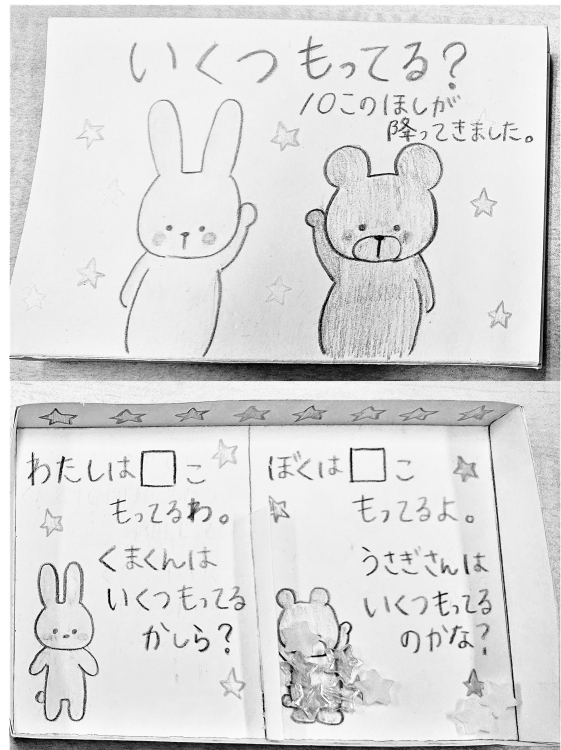 いくつもってる？
10このほしが
降ってきました。
わたしは□こ
もってるわ。
くまくんは
いくつもってる
かしら？
ぼくは□こ
もってるよ。
うさぎさんは
いくつもってる
のかな？